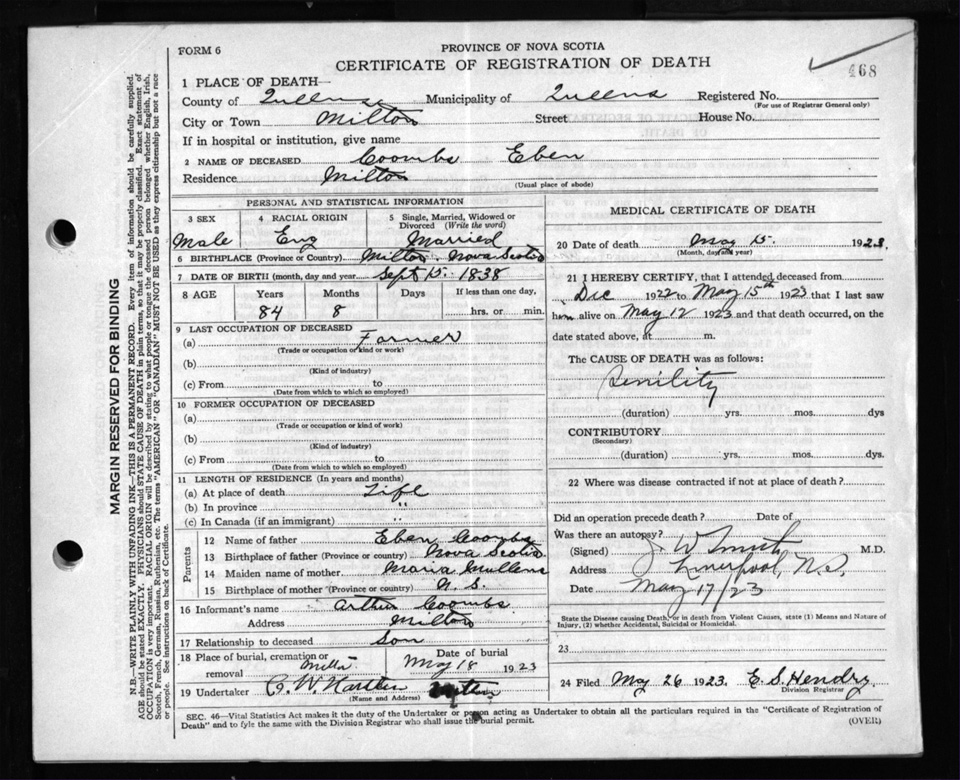 FORM 6
PROVINCE OF NOVA SCOTIA
CERTIFICATE OF REGISTRATION OF DEATH
468
1 PLACE OF DEATH—
County of Queens Municipality of Queens Registered No.
(For use of Registrar General only)
City or Town Milton Street House No.
If in hospital or institution, give name
2 NAME OF DECEASED Coombs Eben
Residence Milton
(Usual place of abode)
PERSONAL AND STATISTICAL INFORMATION
3 SEX 4 RACIAL ORIGIN 5 Single, Married, Widowed or Divorced (Write the word)
Male Eng Married
6 BIRTHPLACE (Province or Country) Milton Nova Scotia
7 DATE OF BIRTH (month, day and year) Sept 15 1838
8 AGE Years Months Days If less than one day,
84 8 hrs. or min.
9 LAST OCCUPATION OF DECEASED
(a) Farmer
(Trade or occupation or kind or work)
(b)
(Kind of industry)
(c) From to
(Date from which to which so employed)
10 FORMER OCCUPATION OF DECEASED
(a)
(Trade or occupation or kind of work)
(b)
(Kind of industry)
(c) From to
(Date from which to which so employed)
11 LENGTH OF RESIDENCE (In years and months)
(a) At place of death Life
(b) In province "
(c) In Canada (if an immigrant) "
Parents
12 Name of father Eben Coombs
13 Birthplace of father (Province or country) Nova Scotia
14 Maiden name of mother Maria Mullens
15 Birthplace of mother (Province or country) N. S.
16 Informant's name Arthur Coombs
Address Milton
17 Relationship to deceased Son
18 Place of burial, cremation or removal Date of burial
May 18 1923
19 Undertaker C. W.
(Name and Address)
MEDICAL CERTIFICATE OF DEATH
20 Date of death May 15 1923
(Month, day and year)
21 I HEREBY CERTIFY, that I attended deceased from
Dec 1922 to May 15th 1923 that I last saw
him alive on May 12 1923 and that death occurred, on
date stated above, at m.
The CAUSE OF DEATH was as follows:
Senility
(duration) yrs. mos. dys
CONTRIBUTORY
(Secondary)
(duration) yrs. mos. dys.
22 Where was disease contracted if not at place of death?
Did an operation precede death? Date of
Was there an autopsy?
(Signed) J W Smith M.D.
Address Liverpool, N.S.
Date May 17/23
State the Disease causing Death, or in death from Violent Causes, state (1) Means and Nature of
Injury, (2) whether Accidental, Suicidal or Homicidal.
23
24 Filed May 26 1923. E. S. Hendry
Division Registrar
SEC. 46—Vital Statistics Act makes it the duty of the Undertaker or person acting as Undertaker to obtain all the particulars required in the "Certificate of Registration of
Death" and to fyle the same with the Division Registrar who shall issue the burial permit.
(OVER)
MARGIN RESERVED FOR BINDING
N.B.—WRITE PLAINLY WITH UNFADING INK—THIS IS A PERMANENT RECORD. Every item of information should be carefully supplied.
AGE should be stated EXACTLY. PHYSICIANS should STATE CAUSE OF DEATH in plain terms, so that it may be properly classified. Exact statement of
OCCUPATION is very important. RACIAL ORIGIN will be described by stating to what people or tongue the deceased person belonged whether English, Irish,
Scotch, French, German, Russian, Ruthenian, etc. The terms "AMERICAN" OR "CANADIAN" MUST NOT BE USED as they express citizenship but not a race
or people. See instructions on back of Certificate.